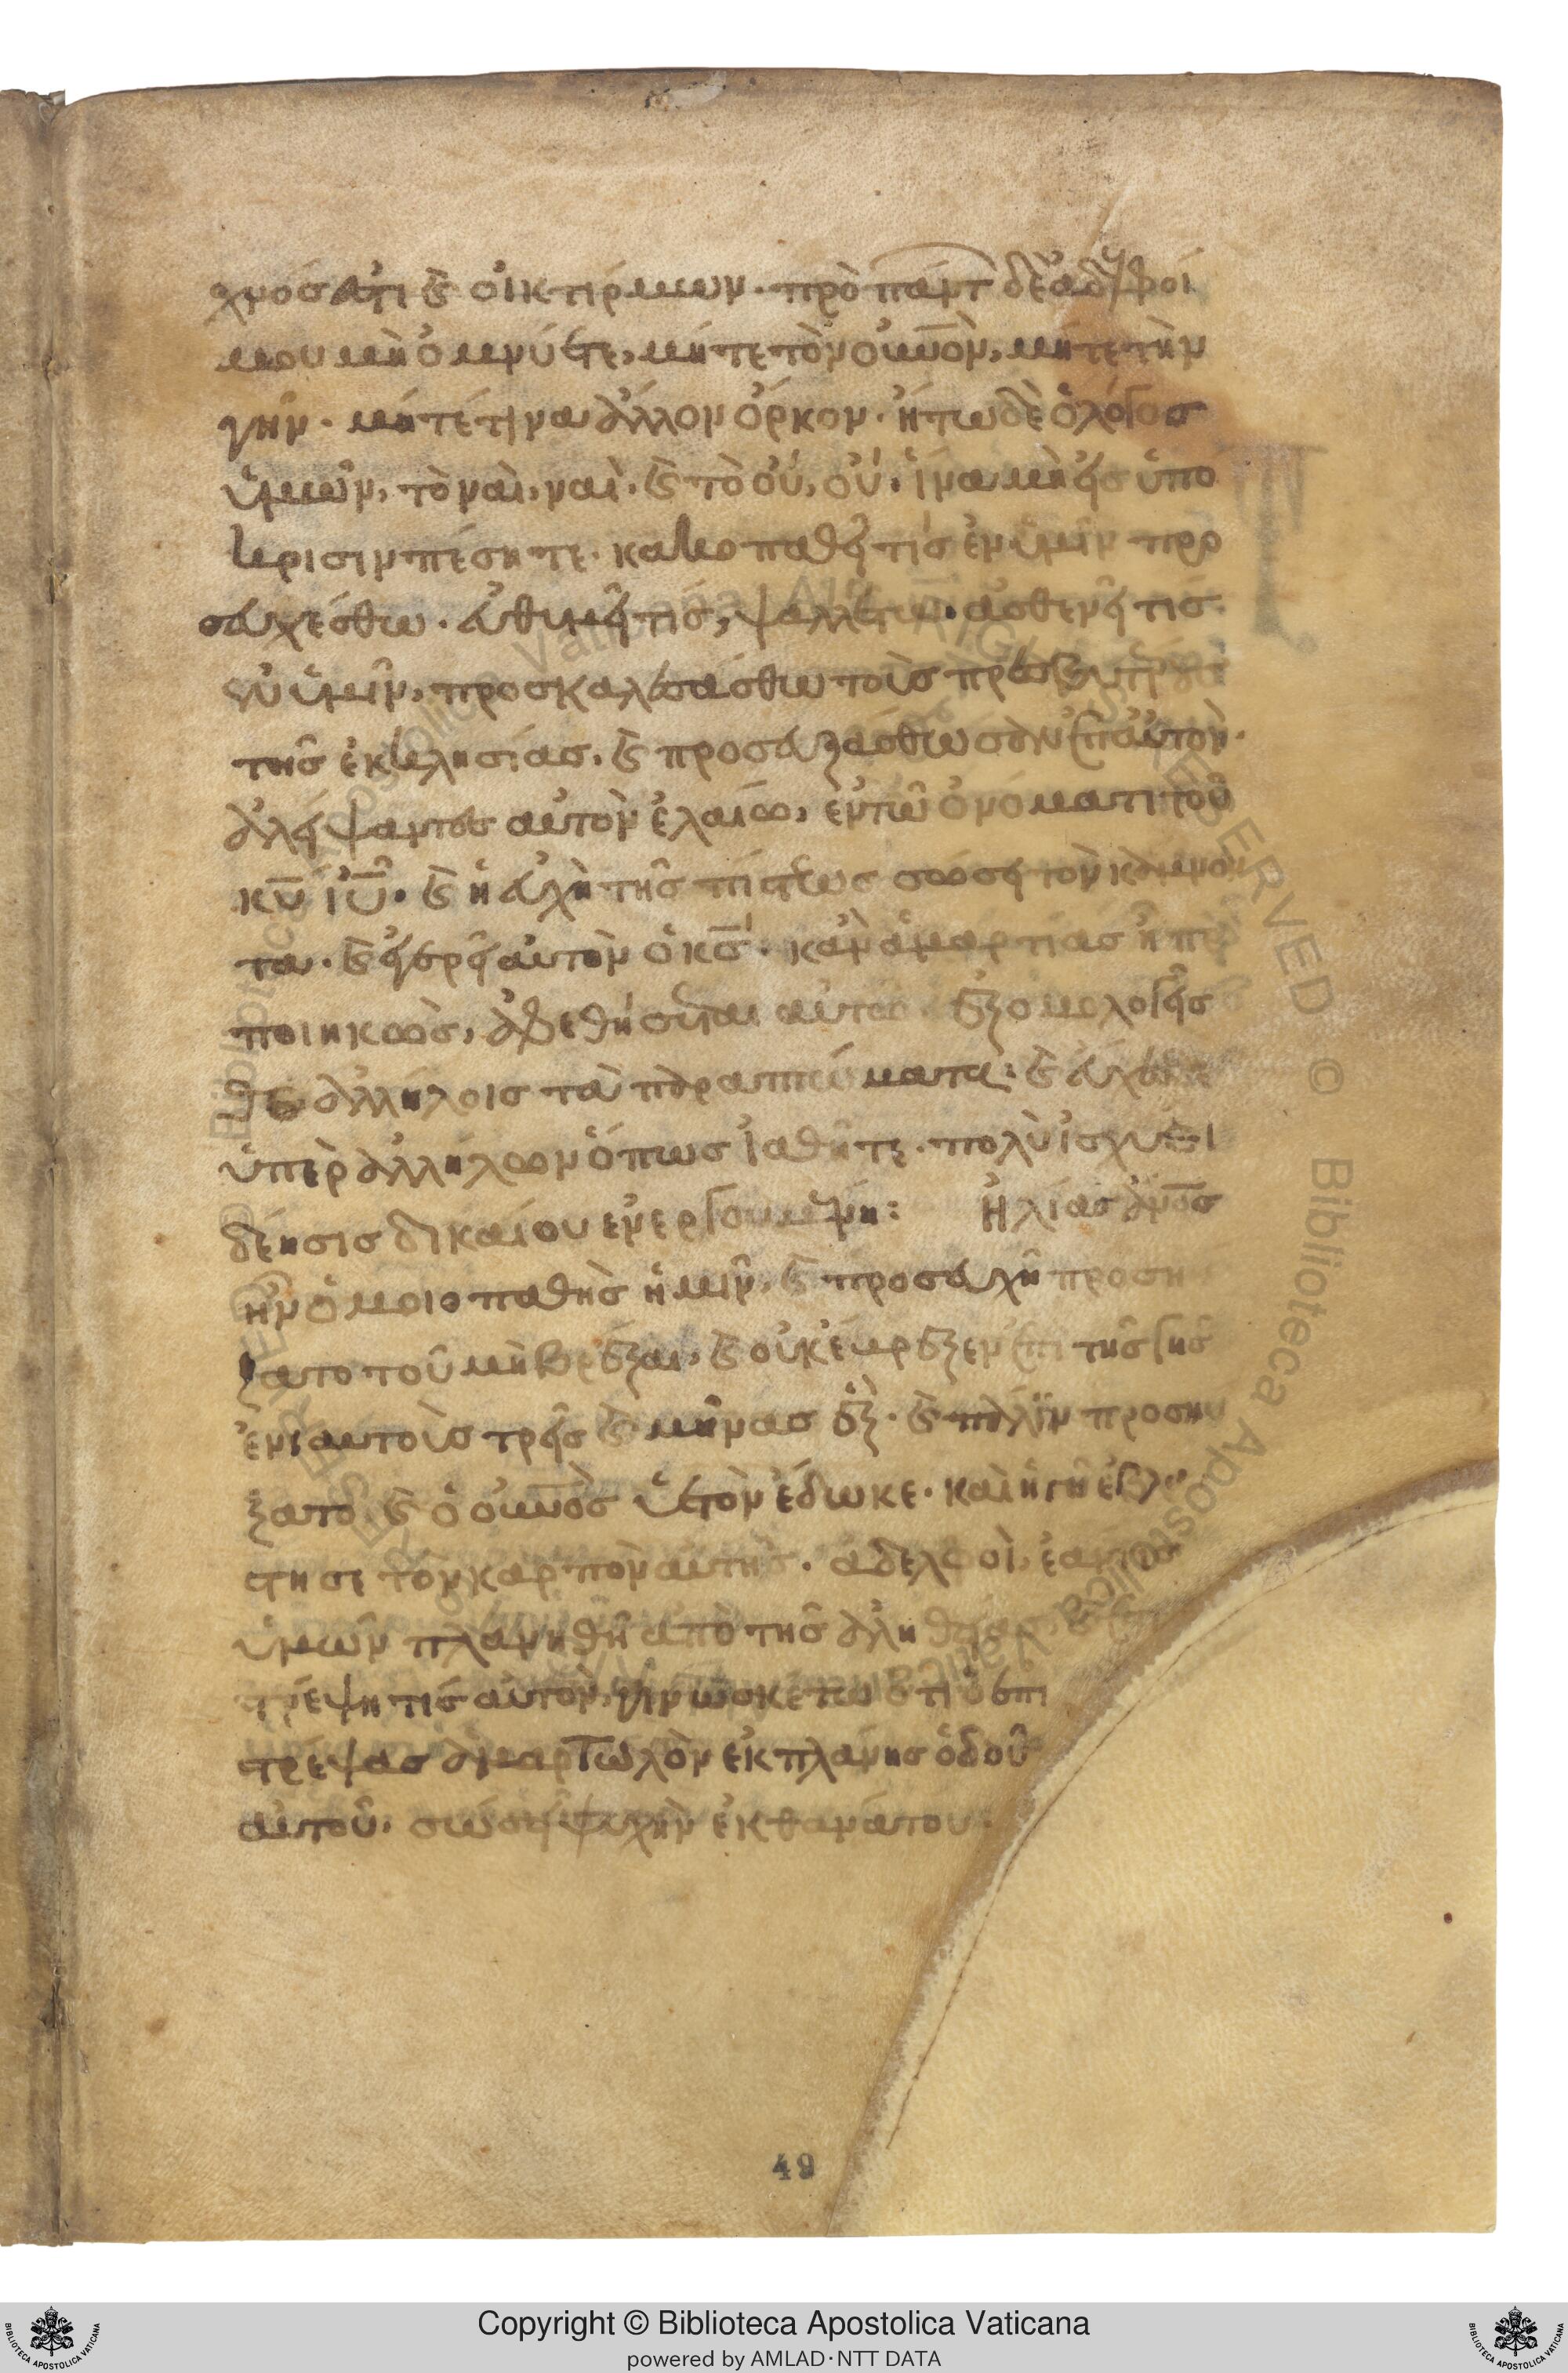 χνός ἐστι καὶ οἰκτίρμων. πρὸ πάντ δὲ ἀδελφοί
μου μὴ ὀμνύετε, μήτε τὸν οὐνον, μήτε τὴν
γῆν. μήτέ τινα ἄλλον ὅρκον. ἤτω δὲ ὁ λόγος
ὑμῶν, τὸ ναὶ, ναὶ. καὶ τὸ οὔ, οὔ. ἵνα μὴ εἰς ὑπο
κρισιν πέσητε. κακοπαθεῖ τίς ἐν ὑμῖν προ
σευχέσθω. εὐθυμεῖ τίς, ψαλλέτω. ἀσθενεῖ τίς
ἐν ὑμῖν, προσκαλεσάσθω τοὺς πρεσβυτέρους
τῆς ἐκκλησίας. καὶ προσευξάσθωσαν ἐπ αὐτὸν.
ἀλείψαντες αὐτὸν ἐλαίω, ἐν τῶ ὀνόματι τοῦ
κυ ιυ. καὶ ἡ εὐχὴ τῆς πίστεως σώσει τὸν κάμνον
τα. καὶ ἐγερεῖ αὐτὸν ὁ κς. κἀν ἁμαρτίας ἦ πε
ποιηκὼς, ἀφεθήσεται αὐτῶ. ἐξομολογεῖσ
θε ἀλλήλοις τὰ παραπτώματα. καὶ εὔχεσθε
ὑπὲρ ἀλλήλων ὅπως ἰαθῆτε. πολὺ ἰσχύει
δέησις δικαίου ἐνεργουμένη: Ἠλίας ἀνος
ἦν ὁμοιοπαθὴς ἡμῖν. καὶ προσευχῆ προσηύ
ξατο τοῦ μὴ βρέξαι, καὶ οὐκ ἔβρεξεν ἐπὶ τῆς γῆς
ἐνιαυτοὺς τρεῖς καὶ μῆνας ἕξ. καὶ πάλιν προσηυ
ξατο, καὶ ὁ οὐνος ὑετὸν ἔδωκε. καὶ ἡ γῆ ἐβλα
στησε τὸν καρπὸν αὐτῆς. ἀδελφοὶ, ἐάν τις
ὑμῶν πλανηθῆ ἀπὸ τῆς ἀληθείας,
στρέψη τίς αὐτὸν, γινωσκέτω ὅτι ὁ ἐπι
στρέψας ἁμαρτωλὸν ἐκ πλάνης ὁδοῦ
αὐτοῦ. σώσει ψυχὴν ἐκ θανάτου:
49
Copyright © Biblioteca Apostolica Vaticana
powered by AMLAD·NTT DATA